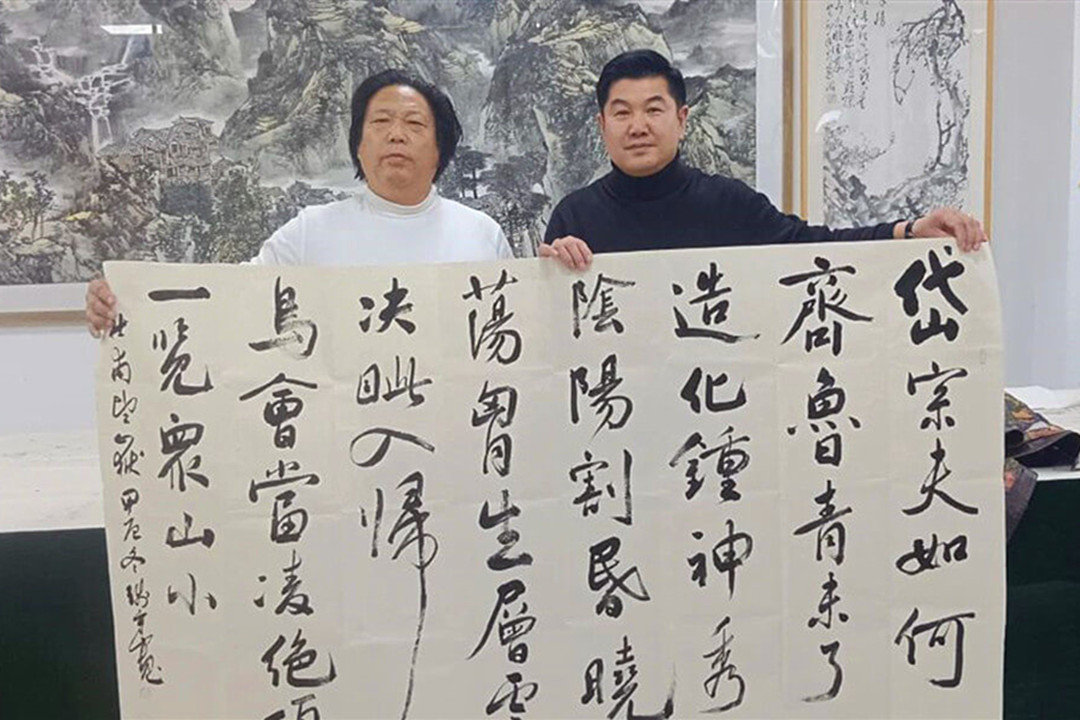 岱宗夫如何
齊魯青未了
造化鍾神秀
陰陽割昬曉
蕩胷生層雲
决眦入歸
鳥會當凌絶
一覽眾山小
杜甫望嶽甲辰冬